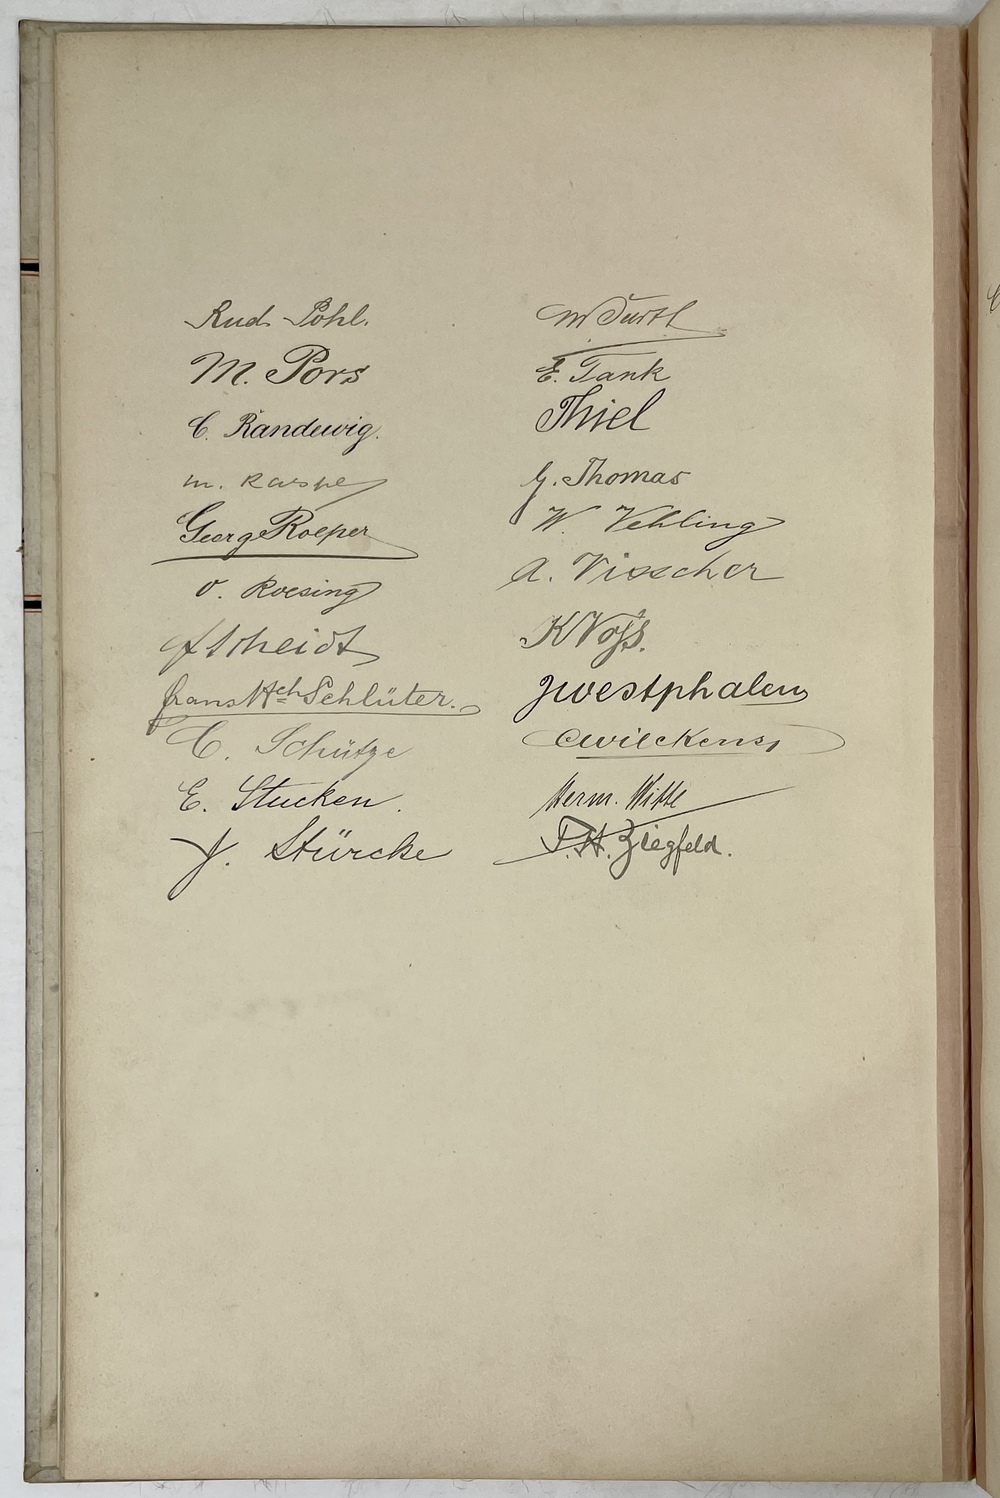 Rud. Pohl.
M. Pors
C. Randewig.
m. Raspe
Georg Roeper
O. Roesing
Scheidt
Franz Hch Schlüter.
C. Schütze
E. Stucken.
J. Stürcke
E. Tank
Thiel
G. Thomas
W. Vehling
A. Visscher
K Voß.
JWestphalen
CWilckens,
Herm. Witte
P. H. Ziegfeld.